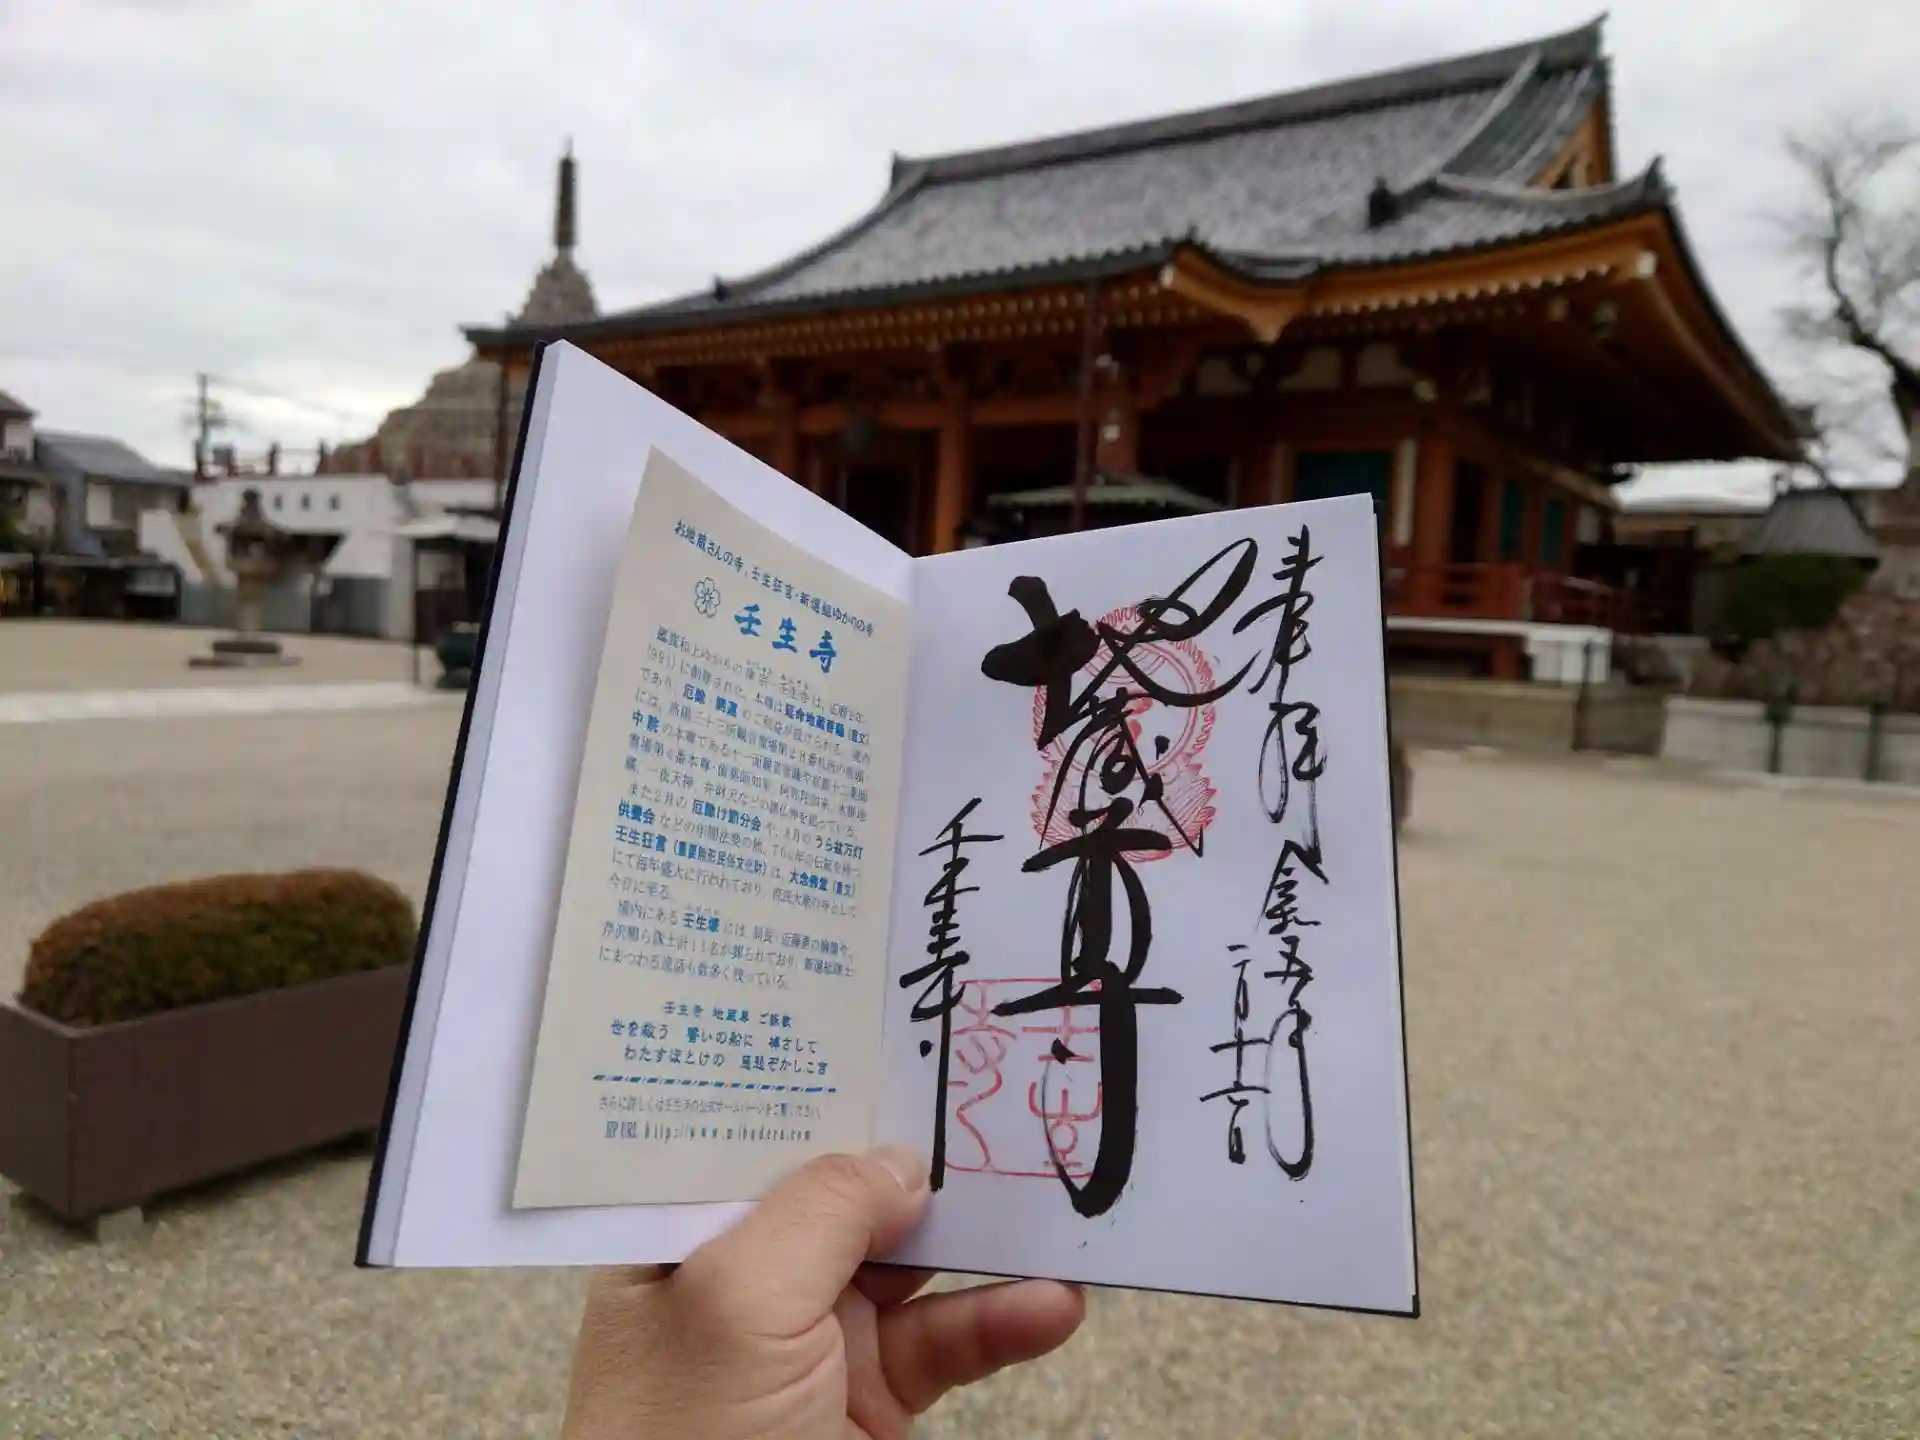 お地蔵さんの寺、壬生狂言・新選組ゆかりの寺
壬生寺
鑑真和上ゆかりの律宗 壬生寺は、正暦2年
(991)に創建された。本尊は延命地蔵菩薩(重文)
であり、厄除・開運のご利益が授けられる。境内
には、洛陽三十三所観音霊場第28番札所の
中院の本尊である十一面観音菩薩や京都十二薬師
霊場第4番本尊・歯薬師如来、阿弥陀如来、水掛地
蔵、一夜天神、弁財天などの諸仏神を祀っている。
また2月の厄除け節分会や、8月のうら盆万灯
供養会などの年間法要の他、700年の伝統を持つ
壬生狂言(重要無形民俗文化財)は、大念佛堂(重文)
にて毎年盛大に行われており、庶民大衆の寺として
今日に至る。
境内にある壬生塚には、局長・近藤勇の胸像や、
芹沢鴨ら隊士計11名が葬られており、新選組隊士
にまつわる逸話も数多く残っている。
壬生寺 地蔵尊 ご詠歌
世を救う 誓いの船に 棹さして
わたすほとけの
さらに詳しくは壬生寺の公式ホームページをご覧ください。
HP URL http://www.mibudera.com
奉拝
令和五年
二月十六日
地蔵尊
壬生寺